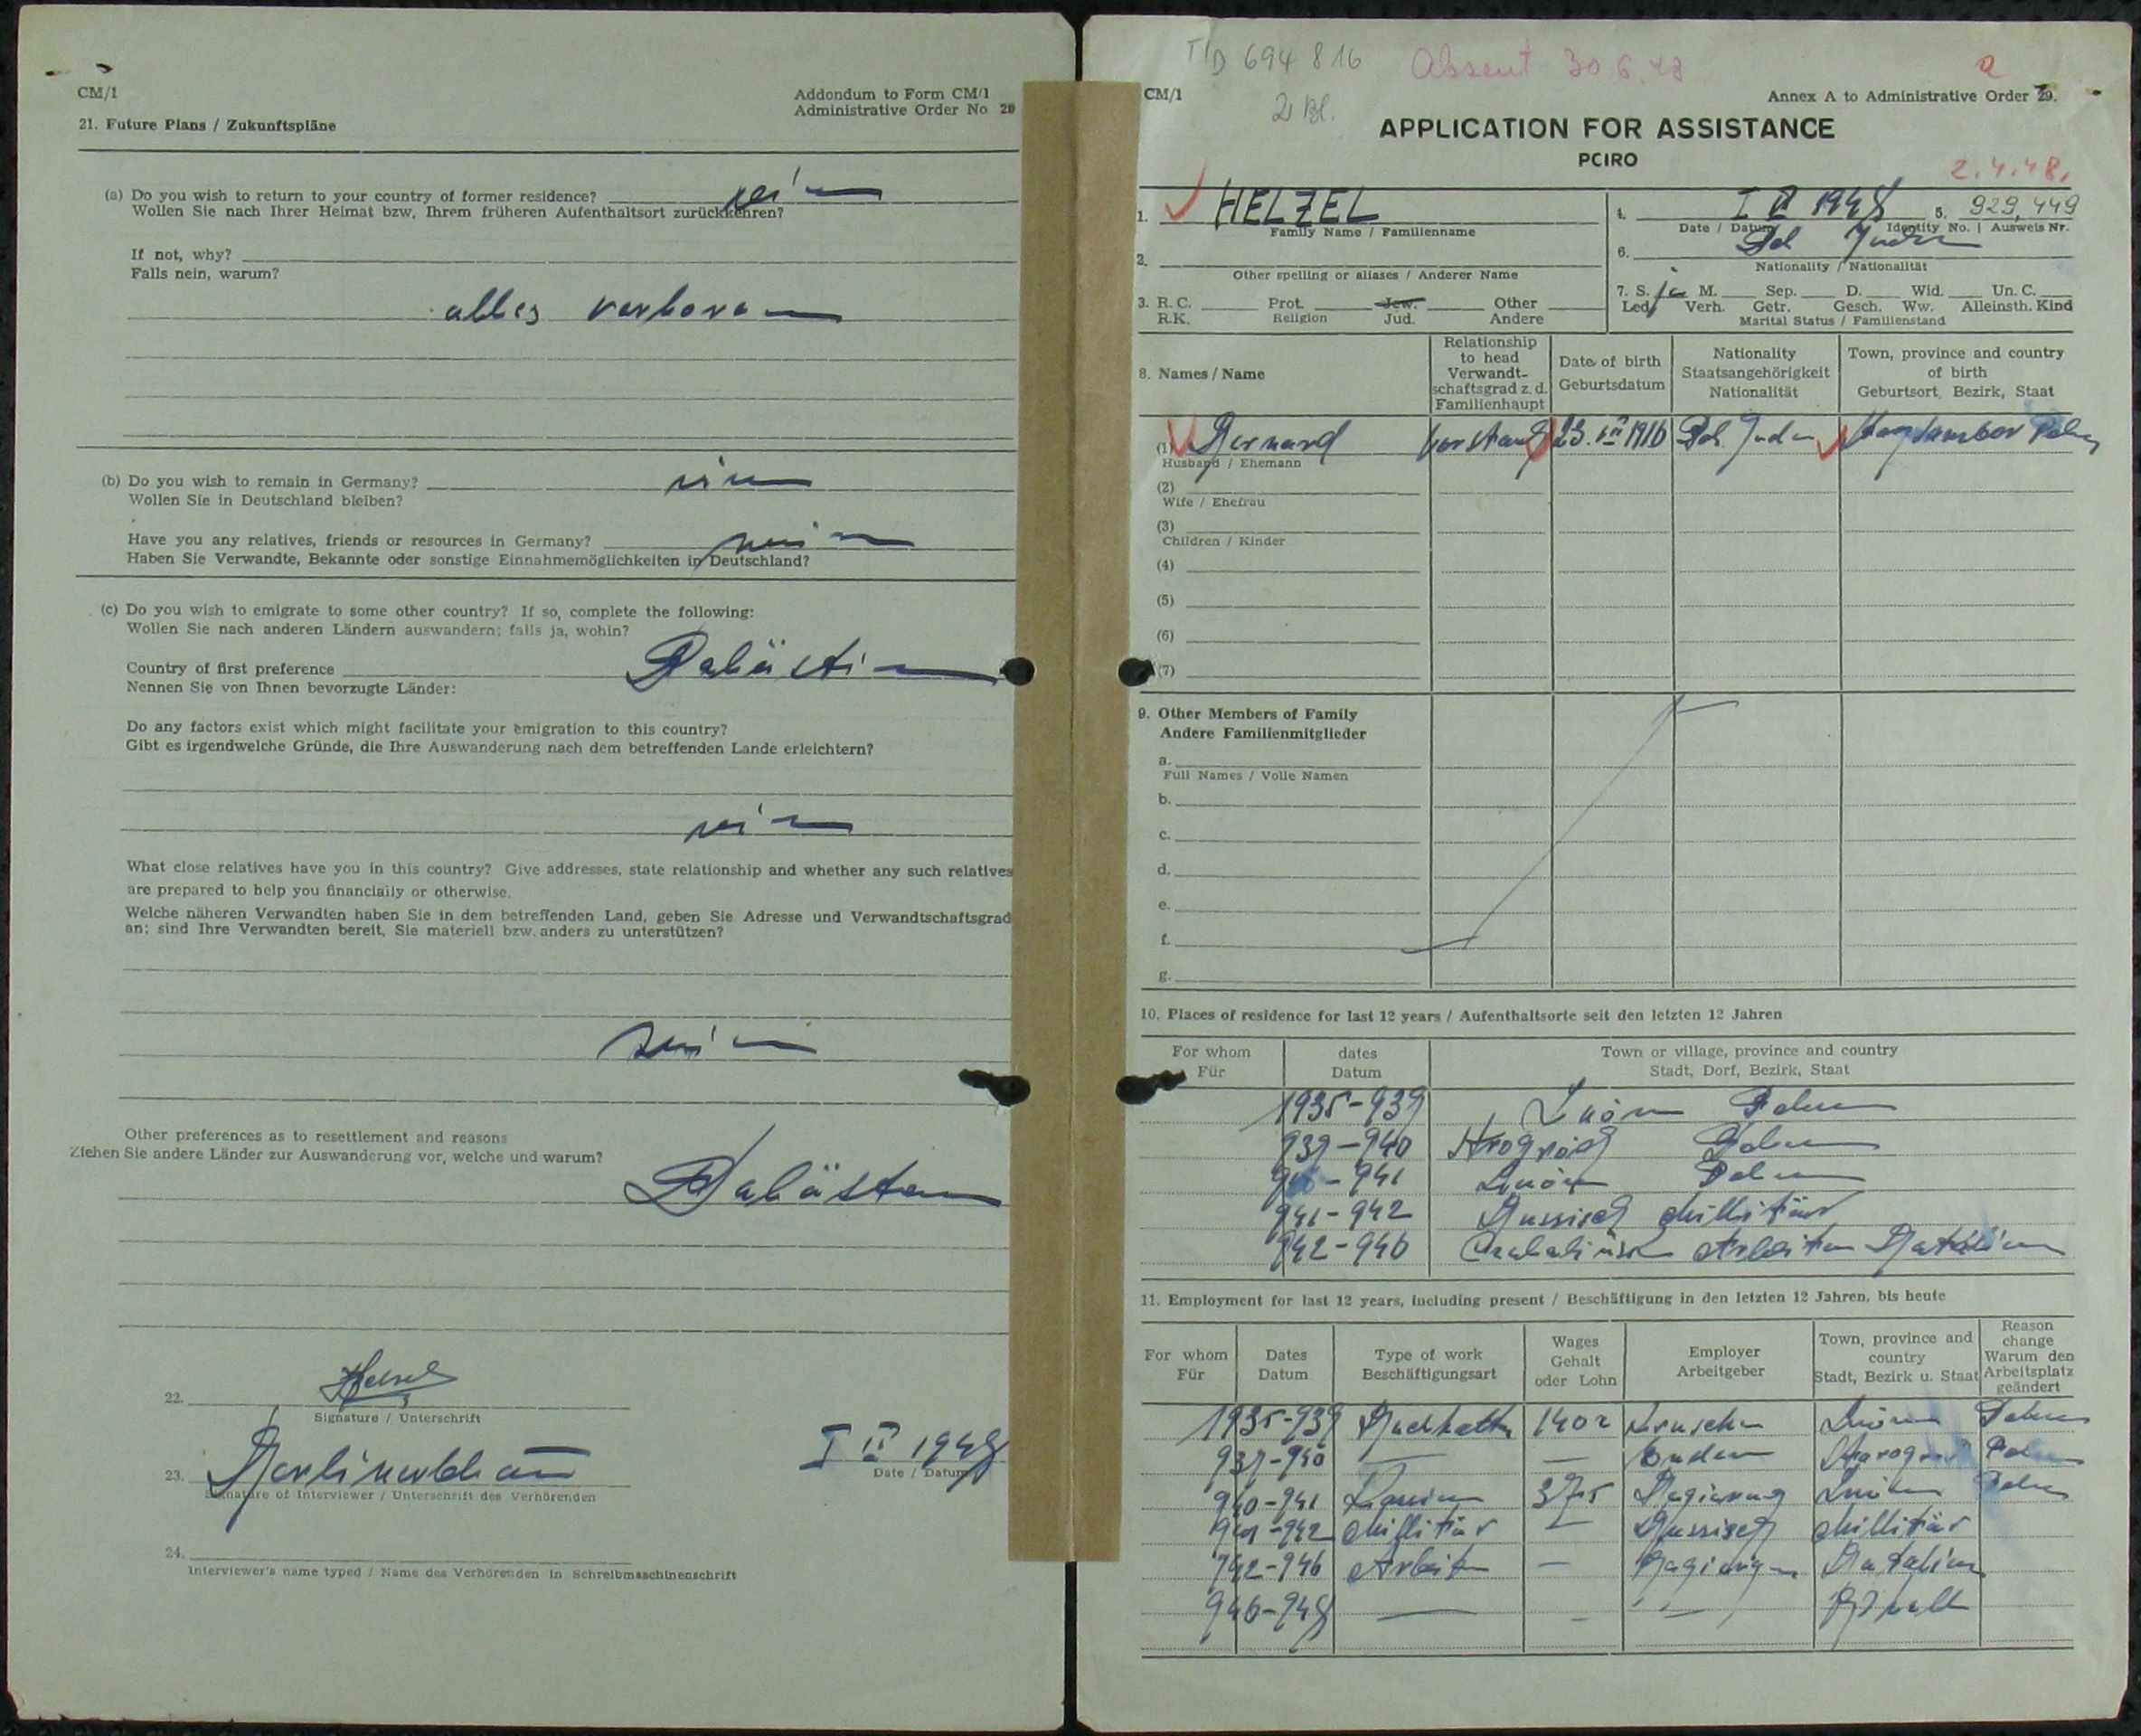 CM/1
Addondum to Form CM/1
Administrative Order No 29
21. Future Plans / Zukunftspläne
(a) Do you wish to return to your country of former residence? nein
Wollen Sie nach Ihrer Heimat bzw, Ihrem früheren Aufenthaltsort zurückkehren?
If not, why?
Falls nein, warum?
alles verloren
(b) Do you wish to remain in Germany? nein
Wollen Sie in Deutschland bleiben?
Have you any relatives, friends or resources in Germany? nein
Haben Sie Verwandte, Bekannte oder sonstige Einnahmemöglichkeiten in Deutschland?
(c) Do you wish to emigrate to some other country? If so, complete the following:
Wollen Sie nach anderen Ländern auswandern; falls ja, wohin?
Country of first preference Palästin
Nennen Sie von Ihnen bevorzugte Länder:
Do any factors exist which might facilitate your emigration to this country?
Gibt es irgendwelche Gründe, die Ihre Auswanderung nach dem betreffenden Lande erleichtern?
nein
What close relatives have you in this country? Give addresses, state relationship and whether any such relatives
are prepared to help you financially or otherwise.
Welche näheren Verwandten haben Sie in dem betreffenden Land, geben Sie Adresse und Verwandtschaftsgrad
an; sind Ihre Verwandten bereit, Sie materiell bzw. anders zu unterstützen?
nein
Other preferences as to resettlement and reasons
Ziehen Sie andere Länder zur Auswanderung vor, welche und warum?
Palästan
22.
Signature / Unterschrift
23. I II 1948
Signature of Interviewer / Unterschrift des Verhörenden Date / Datum
24.
Interviewer's name typed / Name des Verhörenden in Schreibmaschinenschrift
T/D 694 816 Absent 30 6. 48 a
CM/1 2 Bl.
Annex A to Administrative Order 29.
APPLICATION FOR ASSISTANCE
PCIRO
2.4.48.
1. HELZEL
Family Name / Familienname
4. I II 1948 5. 929,449
Date / Datum Identity No. | Ausweis Nr.
2.
Other spelling or aliases / Anderer Name
6. Pol Juden
Nationality / Nationalität
3. R. C. Prot. Jew. Other
R.K. Religion Jud. Andere
7. S. ja M. Sep. D. Wid. Un. C.
Led. Verh. Getr. Gesch. Ww. Alleinsth. Kind
Marital Status / Familienstand
8. Names / Name
Relationship to head Verwandt-schaftsgrad z. d. Familienhaupt
Date of birth Geburtsdatum
Nationality Staatsangehörigkeit Nationalität
Town, province and country of birth Geburtsort, Bezirk, Staat
(1) Bernard Vorstand 1916 Pol. Juden Polen
Husband / Ehemann
(2)
Wife / Ehefrau
(3)
Children / Kinder
(4)
(5)
(6)
(7)
9. Other Members of Family
Andere Familienmitglieder
a.
Full Names / Volle Namen
b.
c.
d.
e.
f.
g.
10. Places of residence for last 12 years / Aufenthaltsorte seit den letzten 12 Jahren
For whom Für
dates Datum
Town or village, province and country
Stadt, Dorf, Bezirk, Staat
1935-939 Polen
939-940 Polen
941 Polen
941-942 Russisch Millitär
942-946 Arbeiten
11. Employment for last 12 years, including present / Beschäftigung in den letzten 12 Jahren, bis heute
For whom Für
Dates Datum
Type of work Beschäftigungsart
Wages Gehalt oder Lohn
Employer Arbeitgeber
Town, province and country Stadt, Bezirk u. Staat
Reason change Warum den Arbeitsplatz geändert
1935-939 Buchhalter Polen
939-940 — — Polen
940-941 375 Regierung Polen
941-942 Millitär — Russisch Millitär
942-946 Arbeiten —
946-948 — —